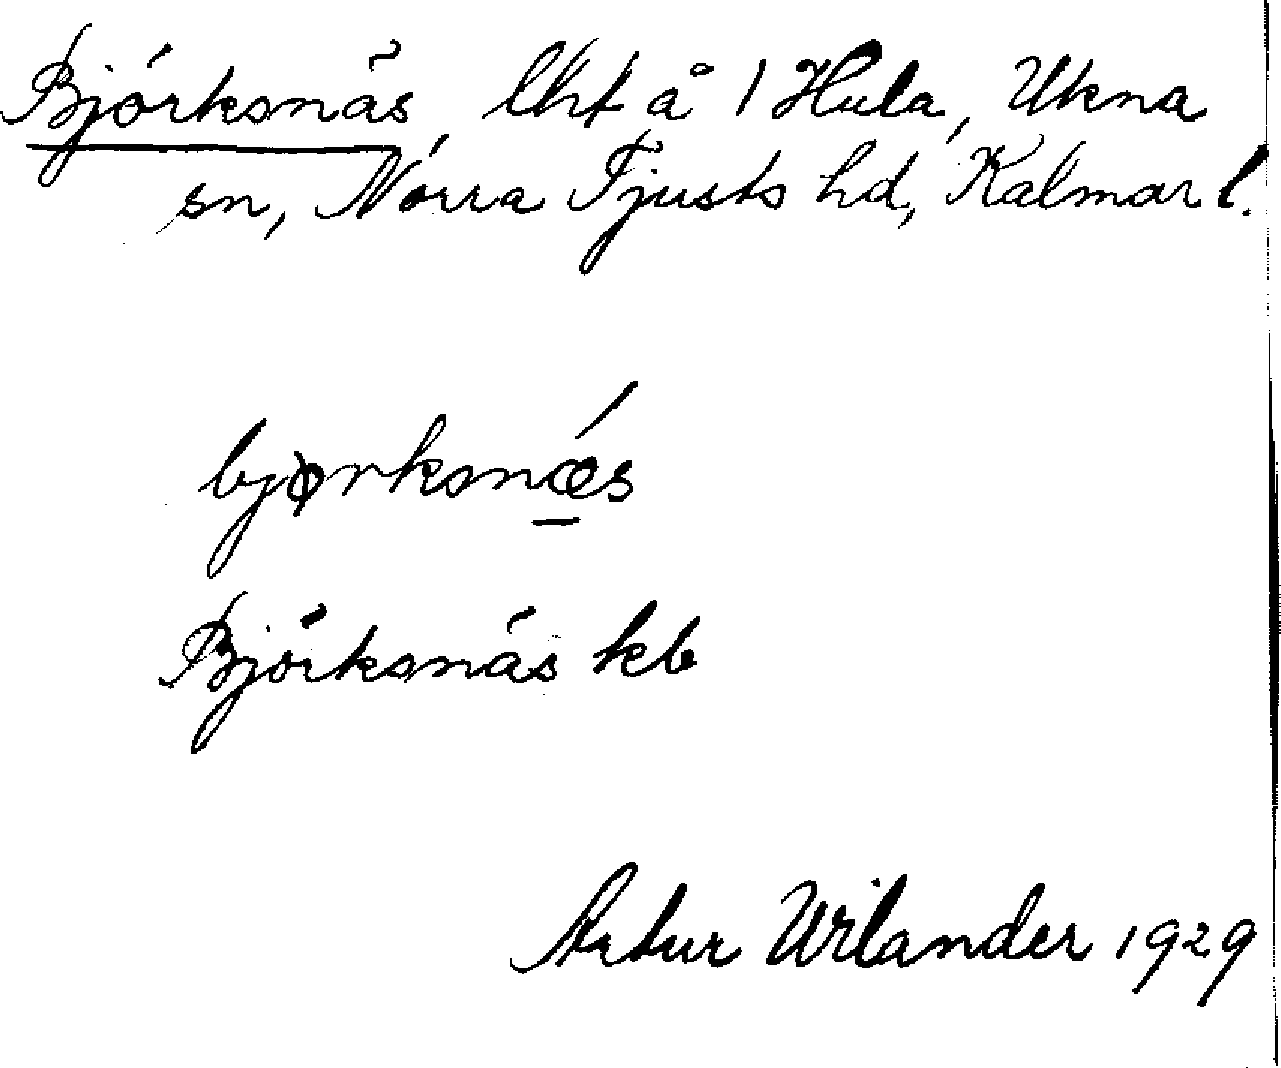 Björksnäs, lht å 1 Hula, Ukna
sn, Norra Tjusts hd, Kalmar l.
bjørksnǽs
Björksnäs kb
Artur Wilander 1929